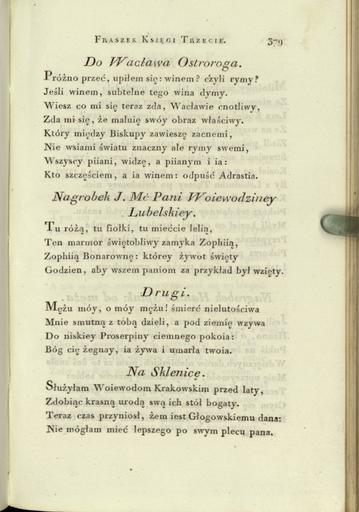 Fraszek Księgi Trzecie. 379
Do Wacława Ostroroga.
Próżno przeć, upiłem się: winem? czyli rymy?
Jeśli winem, subtelne tego wina dymy.
Wiesz co mi się teraz zda, Wacławie cnotliwy,
Zda mi się, że maluię swóy obraz właściwy.
Który między Biskupy zawieszę zacnemi,
Nie wsiami światu znaczny ale rymy swemi,
Wszyscy piiani, widzę, a piianym i ia:
Kto szczęściem, a ia winem: odpuść Adrastia.
Nagrobek J. Mć Pani Woiewodziney
Lubelskiey.
Tu różą, tu fiołki, tu miećcie lelią,
Ten marmor świętobliwy zamyka Zophiią,
Zophiią Bonarownę: którey żywot święty
Godzien, aby wszem paniom za przykład był wzięty.
Drugi.
Mężu móy, o móy mężu! śmierć nielutościwa
Mnie smutną z tobą dzieli, a pod ziemię wzywa
Do niskiey Proserpiny ciemnego pokoia:
Bóg cię żegnay, ia żywa i umarła twoia.
Na Sklenicę.
Służyłam Woiewodom Krakowskim przed laty,
Zdobiąc krasną urodą swą ich stół bogaty.
Teraz czas przyniosł, żem iest Głogowskiemu dana:
Nie mógłam mieć lepszego po swym plecu pana.